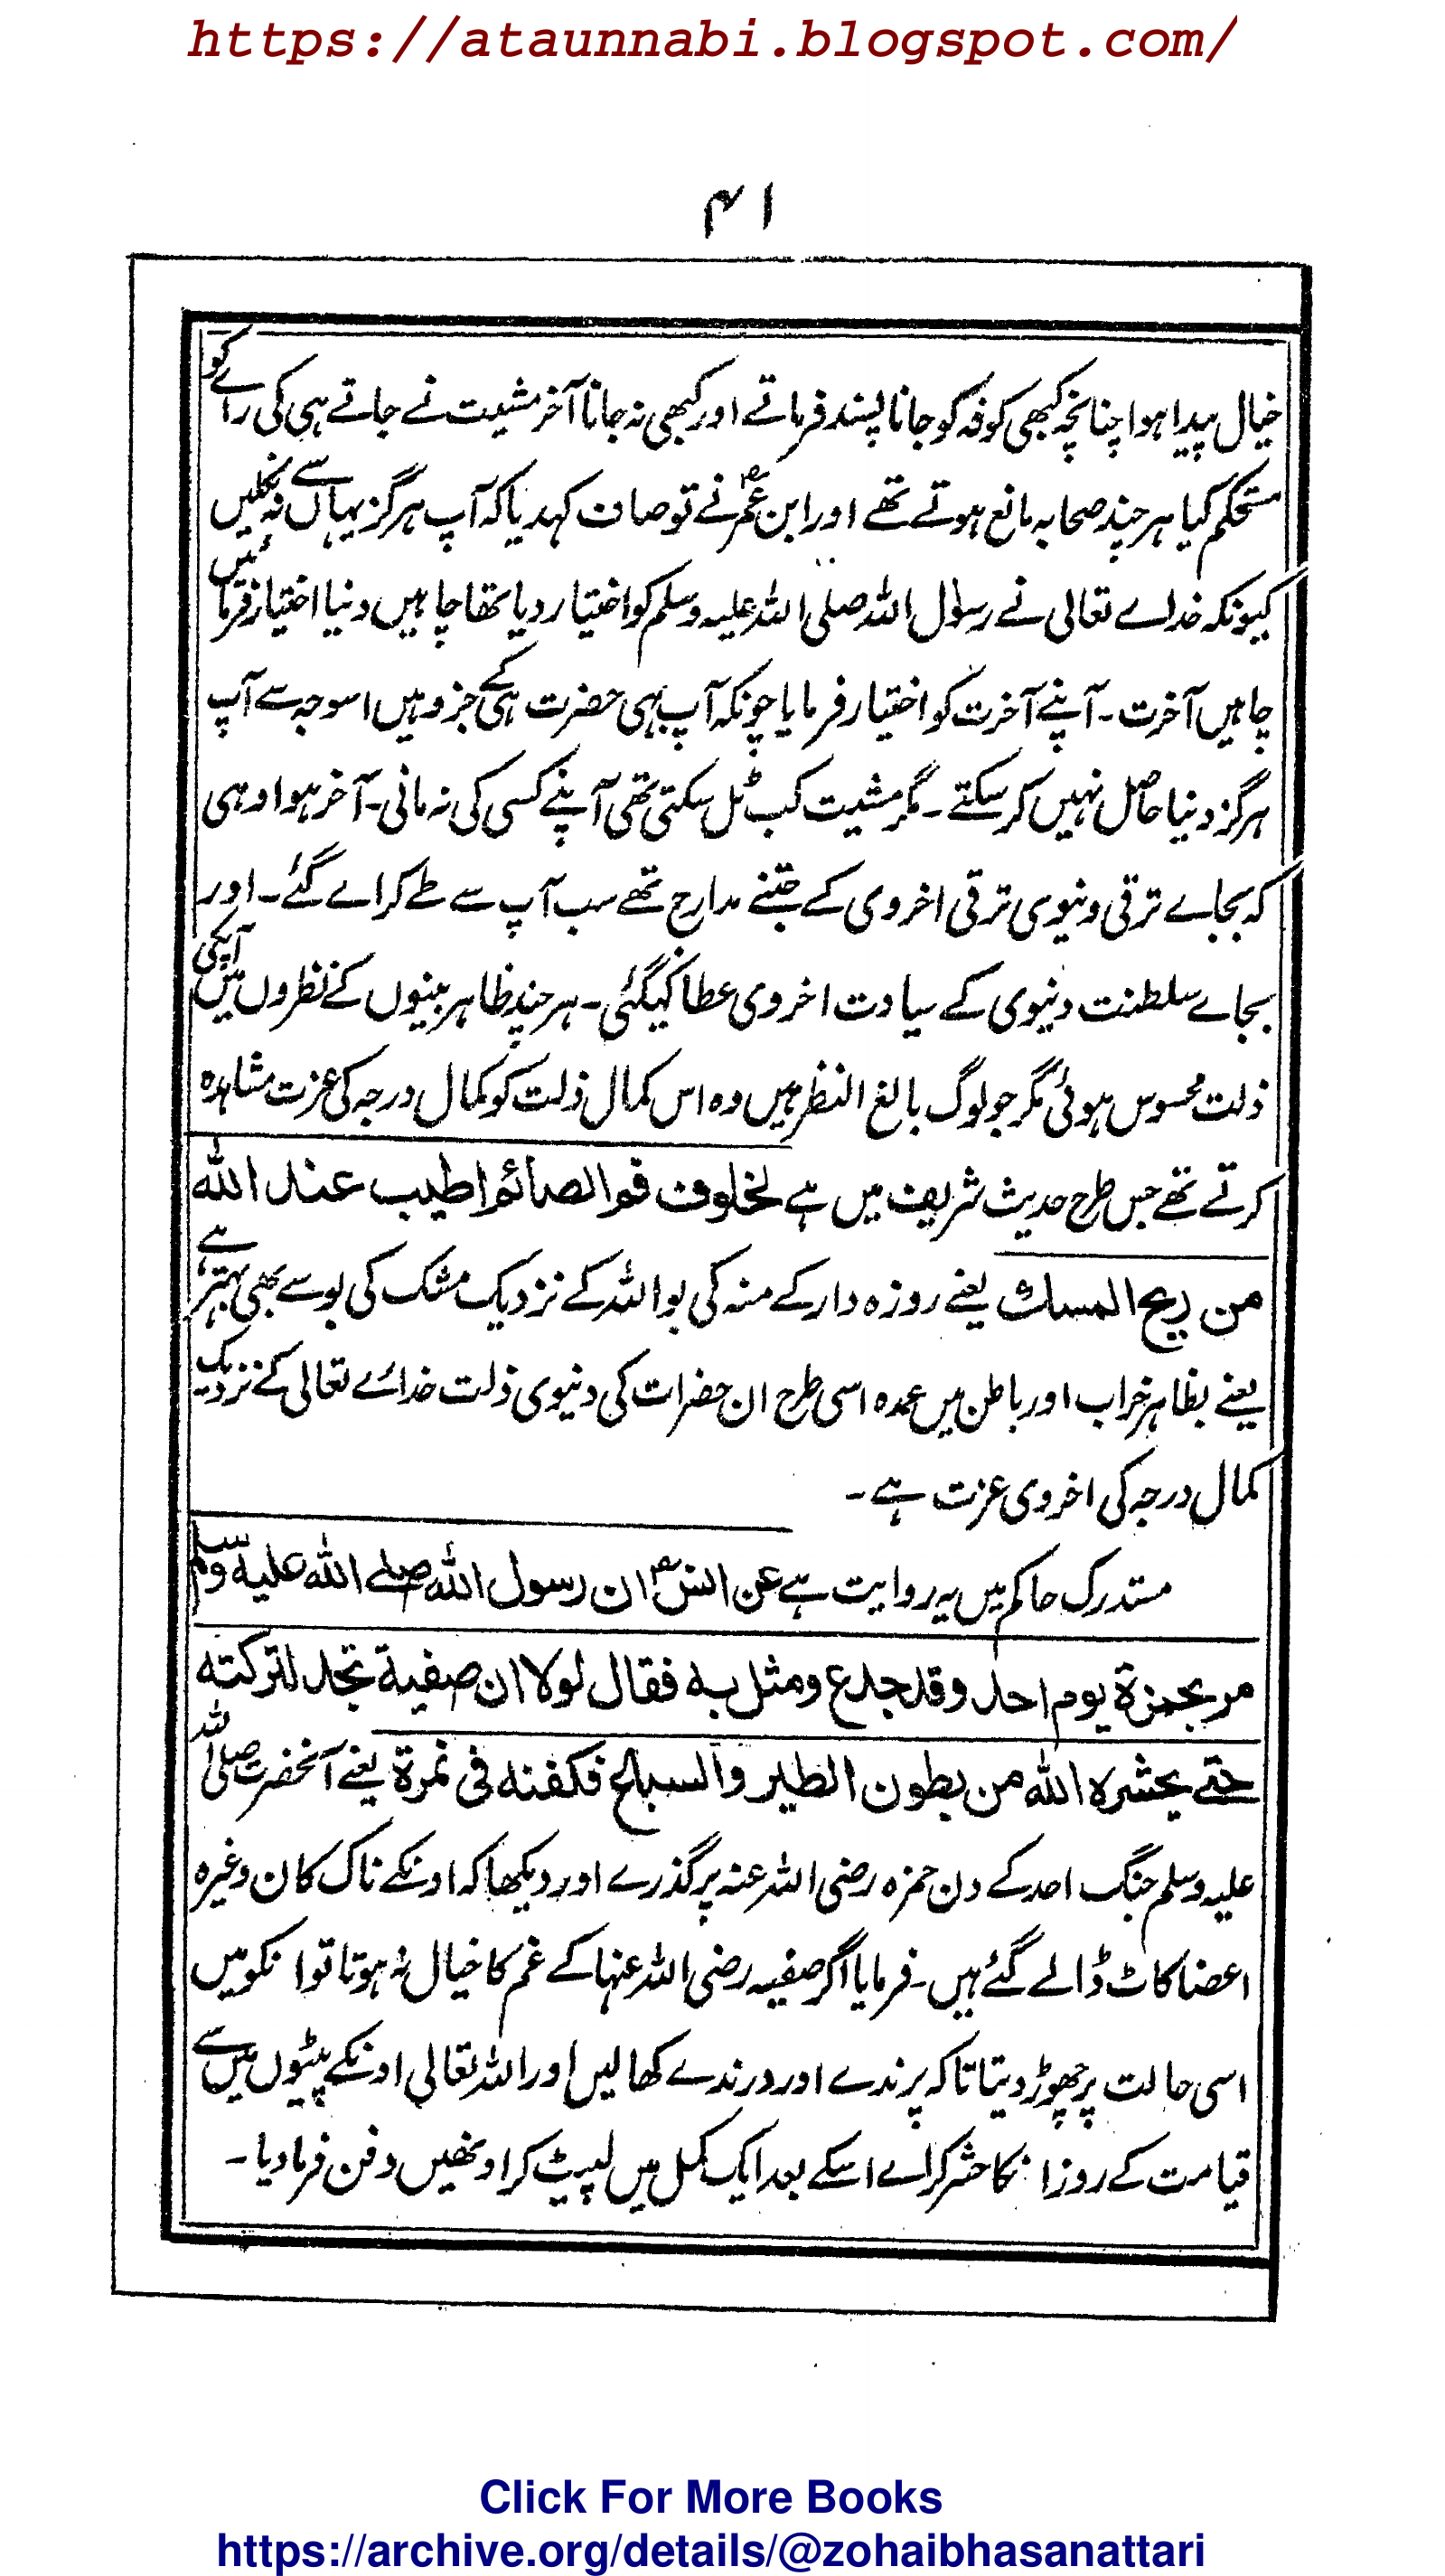 https://ataunnabi.blogspot.com/
۴۱
خیال پیدا ہوا چنانچہ کبھی کوفہ کو جانا پسند فرماتے اور کبھی نہ جانا آخر مشیت نے جاتے ہی کی رائے کو
مستحکم کیا ہر چند صحابہ مانع ہوتے تھے اور ابن عمرؓ نے تو صاف کہدیا کہ آپ ہرگز یہاں سے نہ نکلیں
کیونکہ خداے تعالی نے رسول اللہ صلی اللہ علیہ وسلم کو اختیار دیا تھا چاہیں دنیا اختیار فرمائیں
چاہیں آخرت ۔ آپنے آخرت کو اختیار فرمایا چونکہ آپ بھی حضرت ہی کے جزو ہیں اسوجہ سے آپ
ہرگز دنیا حاصل نہیں کر سکتے ۔ مگر مشیت کب ٹل سکتی تھی آپنے کسی کی نہ مانی ۔ آخر ہوا وہی
کہ بجاے ترقی دنیوی ترقی اخروی کے جتنے مدارج تھے سب آپ سے طے کراے گئے ۔ اور
بجاے سلطنت دنیوی کے سیادت اخروی عطا کیگئی ۔ ہر چند ظاہر بینوں کے نظروں میں آپکی
ذلت محسوس ہوئی مگر جو لوگ بالغ النظر ہیں وہ اس کمال ذلت کو کمال درجہ کی عزت مشاہدہ
کرتے تھے جس طرح حدیث شریف میں ہے لخلوف فم الصائم اطیب عند اللہ
من ریح المسک یعنے روزہ دار کے منہ کی بو اللہ کے نزدیک مشک کی بو سے بھی بہتر ہے
یعنے بظاہر خراب اور باطن میں عمدہ اسی طرح ان حضرات کی دنیوی ذلت خدائے تعالی کے نزدیک
کمال درجہ کی اخروی عزت ہے ۔
مستدرک حاکم میں یہ روایت ہے عن انسؓ ان رسول اللہ صلے اللہ علیہ وسلم
مر بحمزة یوم احد وقد جدع ومثل بہ فقال لولا ان صفیة تجد لترکتہ
حتے یحشرہ اللہ من بطون الطیر والسباع فکفنہ فی نمرة یعنے آنحضرت صلی اللہ
علیہ وسلم جنگ احد کے دن حمزہ رضی اللہ عنہ پر گذرے اور دیکھا کہ اونکے ناک کان وغیرہ
اعضا کاٹ ڈالے گئے ہیں ۔ فرمایا اگر صفیہ رضی اللہ عنہا کے غم کا خیال نہ ہوتا تو انکو میں
اسی حالت پر چھوڑ دیتا تاکہ پرندے اور درندے کھالیں اور اللہ تعالی اونکے پیٹوں میں سے
قیامت کے روز انکا حشر کراے اسکے بعد ایک کمل میں لپیٹ کر اونھیں دفن فرمادیا ۔
Click For More Books
https://archive.org/details/@zohaibhasanattari